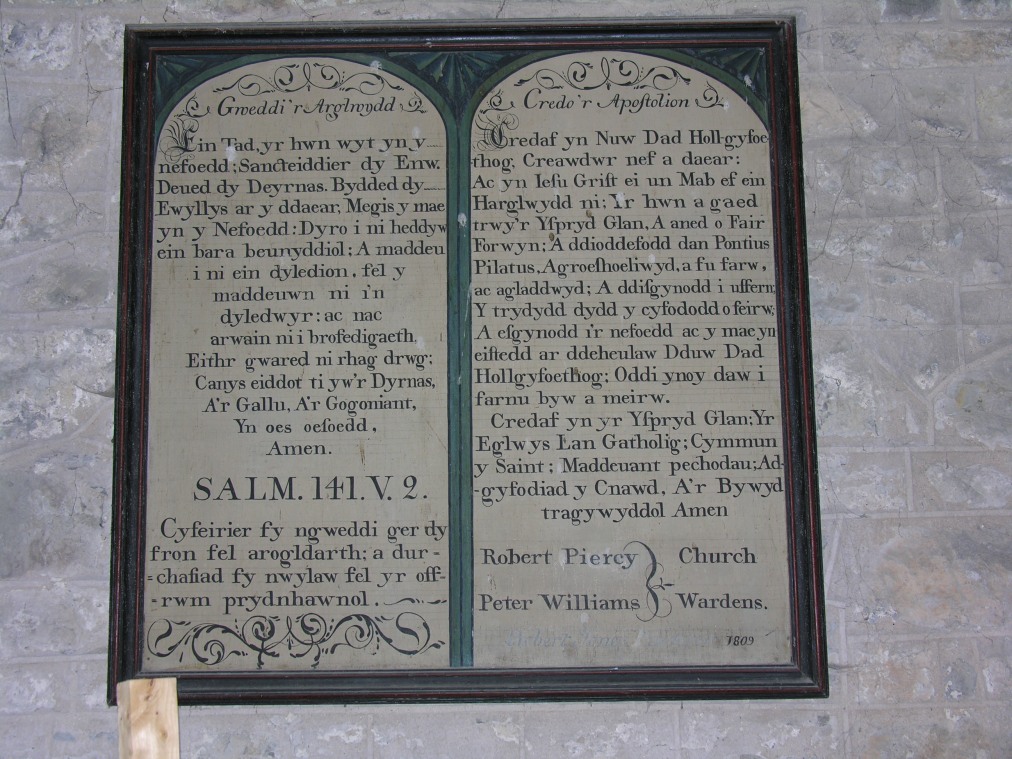 Gweddi'r Arglwydd
Ein Tad, yr hwn wyt yn y
nefoedd; Sancteiddier dy Enw.
Deued dy Deyrnas. Bydded dy
Ewyllys ar y ddaear, Megis y mae
yn y Nefoedd: Dyro i ni heddyw
ein bara beunyddiol; A maddeu
i ni ein dyledion, fel y
maddeuwn ni i'n
dyledwyr: ac nac
arwain ni i brofedigaeth.
Eithr gwared ni rhag drwg;
Canys eiddot ti yw'r Dyrnas,
A'r Gallu, A'r Gogoniant,
Yn oes oesoedd,
Amen.
SALM. 141. V. 2.
Cyfeirier fy ngweddi ger dy
fron fel arogldarth; a dur-
-chafiad fy nwylaw fel yr off-
-rwm prydnhawnol.
Credo'r Apoſtolion
Credaf yn Nuw Dad Holl-gyfoe-
thog, Creawdwr nef a daear:
Ac yn Ieſu Griſt ei un Mab ef ein
Harglwydd ni; Yr hwn a gaed
trwy'r Yſpryd Glan, A aned o Fair
Forwyn; A ddioddefodd dan Pontius
Pilatus, Agroeſhoeliwyd, a fu farw,
ac agladdwyd; A ddiſgynodd i uffern,
Y trydydd dydd y cyfododd o feirw;
A eſgynodd i'r nefoedd ac y mae yn
eiſtedd ar ddeheulaw Dduw Dad
Hollgyfoethog; Oddi ynoy daw i
farnu byw a meirw.
Credaf yn yr Yſpryd Glan; Yr
Eglwys Lan Gatholig; Cymmun
y Saint; Maddeuant pechodau; Ad-
-gyfodiad y Cnawd, A'r Bywyd
tragywyddol Amen
Robert Piercy Church
Peter Williams Wardens.
1809